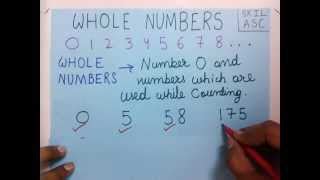 WHOLE NUMBERS
SKIL
ASC
0 1 2 3 4 5 6 7 8 ...
WHOLE NUMBERS → Number 0 and
numbers which are
used while Counting.
9 5 58 175